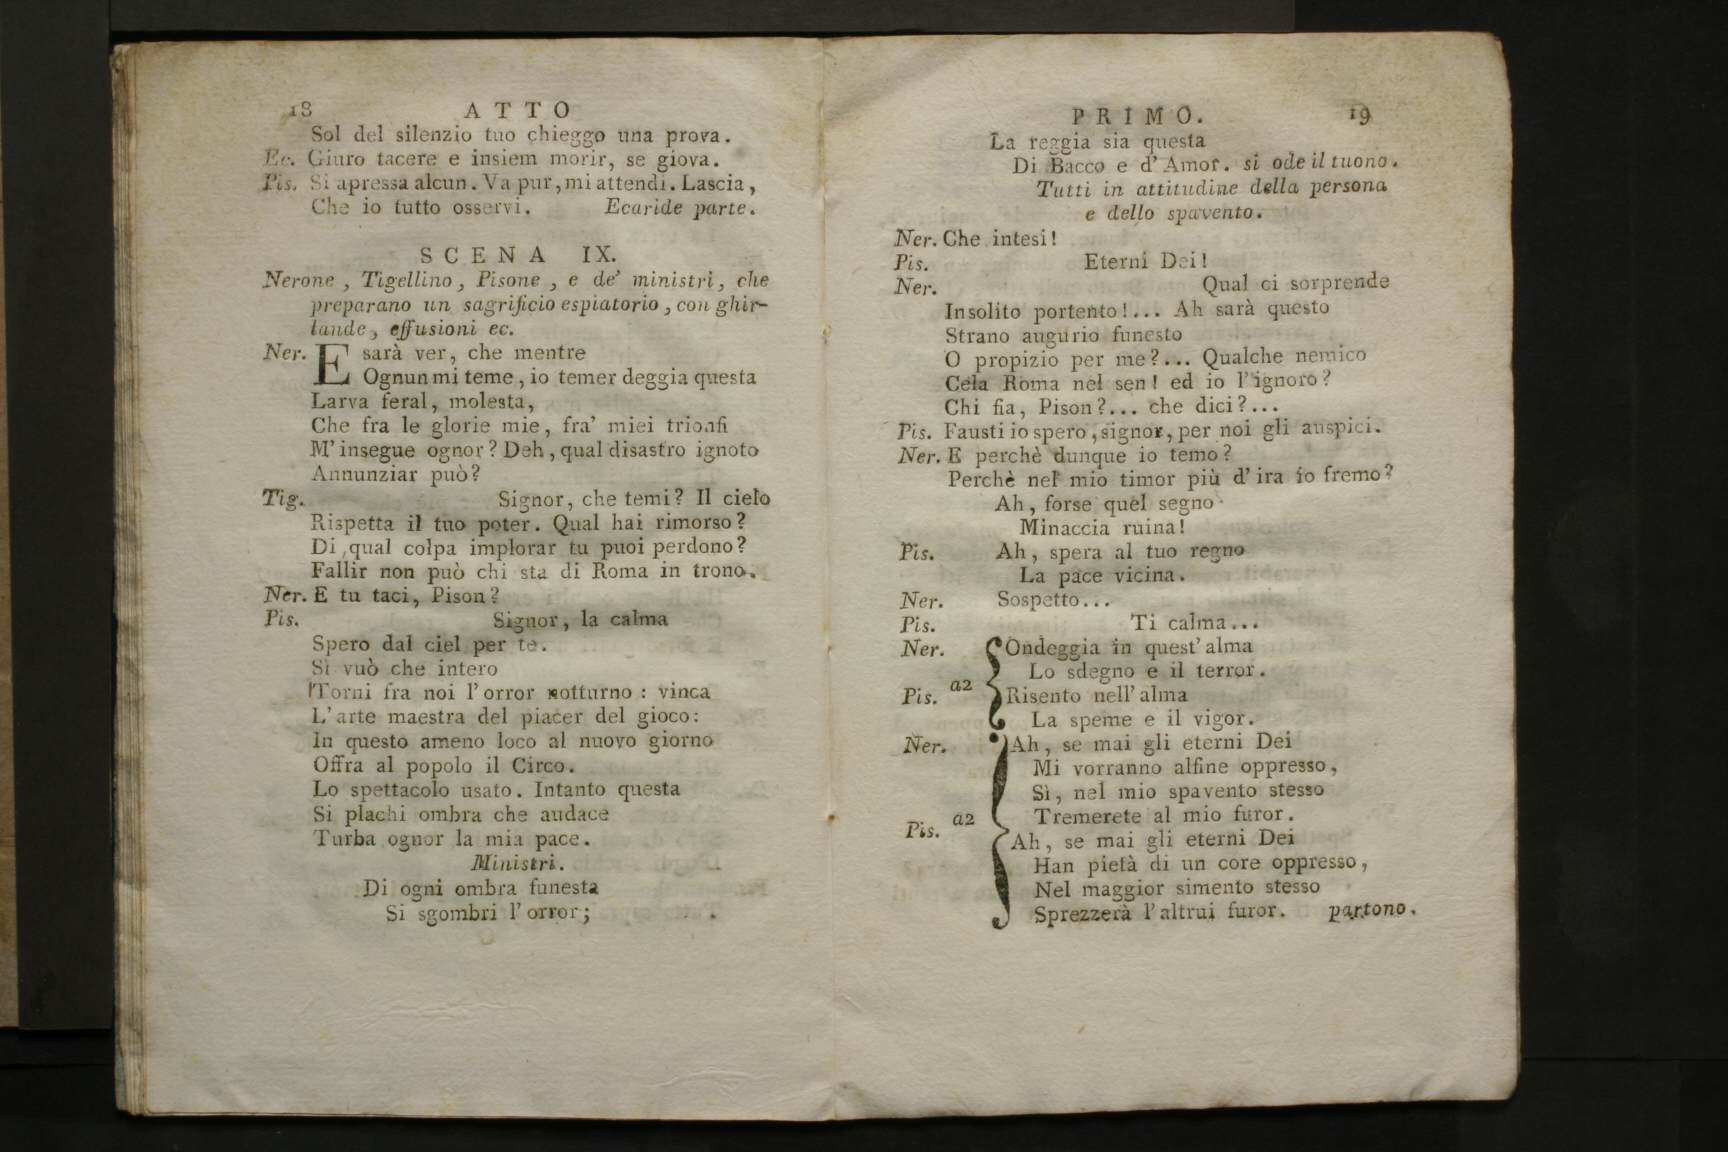 18 ATTO
Sol del silenzio tuo chieggo una prova.
Ec. Giuro tacere e insiem morir, se giova.
Pis. Si apressa alcun. Va pur, mi attendi. Lascia,
Che io tutto osservi. Ecaride parte.
SCENA IX.
Nerone, Tigellino, Pisone, e de' ministri, che
preparano un sagrificio espiatorio, con ghir-
lande, effusioni ec.
Ner. E sarà ver, che mentre
Ognun mi teme, io temer deggia questa
Larva feral, molesta,
Che fra le glorie mie, fra' miei trionfi
M'insegue ognor? Deh, qual disastro ignoto
Annunziar può?
Tig. Signor, che temi? Il cielo
Rispetta il tuo poter. Qual hai rimorso?
Di qual colpa implorar tu puoi perdono?
Fallir non può chi sta di Roma in trono.
Ner. E tu taci, Pison?
Pis. Signor, la calma
Spero dal ciel per te.
Sì vuò che intero
Torni fra noi l'orror notturno: vinca
L'arte maestra del piacer del gioco:
In questo ameno loco al nuovo giorno
Offra al popolo il Circo.
Lo spettacolo usato. Intanto questa
Si plachi ombra che audace
Turba ognor la mia pace.
Ministri.
Di ogni ombra funesta
Si sgombri l'orror;
PRIMO. 19
La reggia sia questa
Di Bacco e d'Amor. si ode il tuono.
Tutti in attitudine della persona
e dello spavento.
Ner. Che intesi!
Pis. Eterni Dei!
Ner. Qual ci sorprende
Insolito portento!... Ah sarà questo
Strano augurio funesto
O propizio per me?... Qualche nemico
Cela Roma nel sen! ed io l'ignoro?
Chi fia, Pison?... che dici?...
Pis. Fausti io spero, signor, per noi gli auspici.
Ner. E perchè dunque io temo?
Perchè nel mio timor più d'ira io fremo?
Ah, forse quel segno
Minaccia ruina!
Pis. Ah, spera al tuo regno
La pace vicina.
Ner. Sospetto...
Pis. Ti calma...
Ner. Ondeggia in quest'alma
Lo sdegno e il terror.
Pis. a2 Risento nell'alma
La speme e il vigor.
Ner. Ah, se mai gli eterni Dei
Mi vorranno alfine oppresso,
Sì, nel mio spavento stesso
Tremerete al mio furor.
Pis. a2 Ah, se mai gli eterni Dei
Han pietà di un core oppresso,
Nel maggior simento stesso
Sprezzerà l'altrui furor. partono.